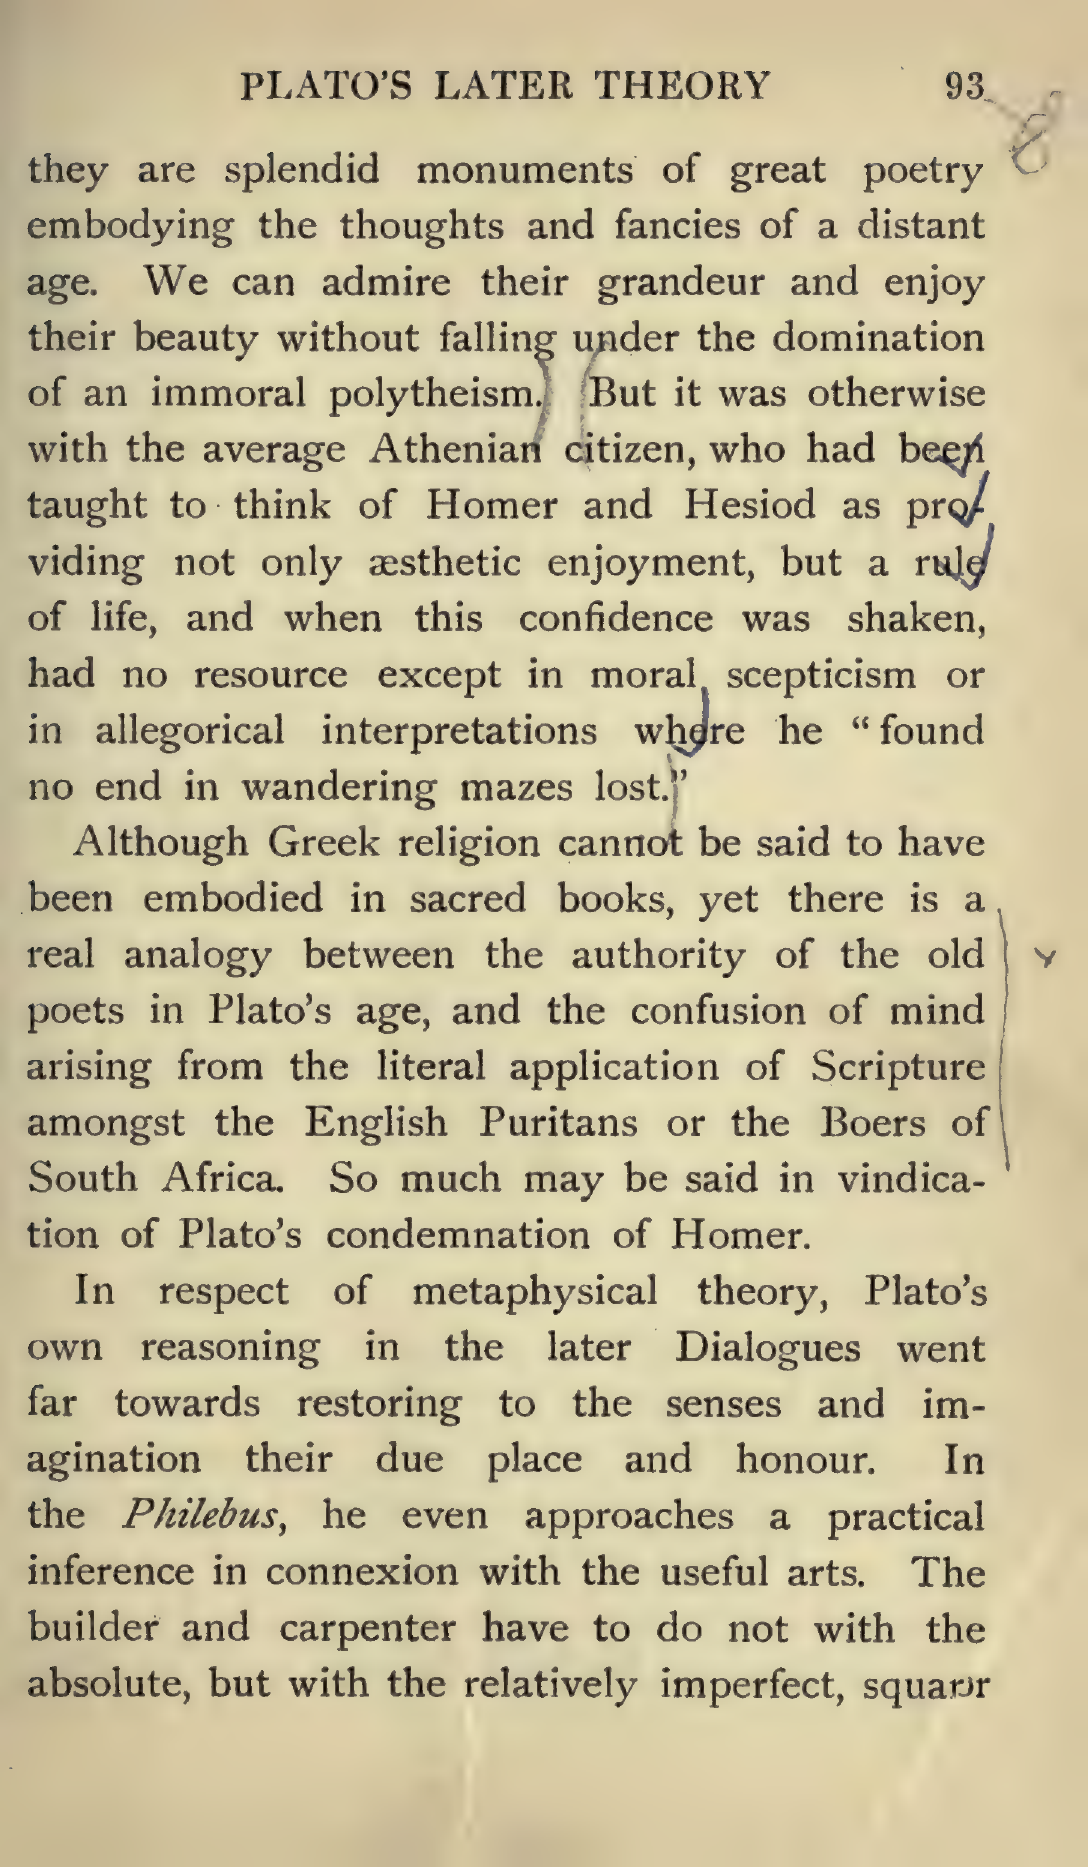 PLATO'S LATER THEORY 93
they are splendid monuments of great poetry
embodying the thoughts and fancies of a distant
age. We can admire their grandeur and enjoy
their beauty without falling under the domination
of an immoral polytheism. But it was otherwise
with the average Athenian citizen, who had been
taught to think of Homer and Hesiod as pro-
viding not only æsthetic enjoyment, but a rule
of life, and when this confidence was shaken,
had no resource except in moral scepticism or
in allegorical interpretations where he “found
no end in wandering mazes lost.”
Although Greek religion cannot be said to have
been embodied in sacred books, yet there is a
real analogy between the authority of the old
poets in Plato's age, and the confusion of mind
arising from the literal application of Scripture
amongst the English Puritans or the Boers of
South Africa. So much may be said in vindica-
tion of Plato's condemnation of Homer.
In respect of metaphysical theory, Plato's
own reasoning in the later Dialogues went
far towards restoring to the senses and im-
agination their due place and honour. In
the Philebus, he even approaches a practical
inference in connexion with the useful arts. The
builder and carpenter have to do not with the
absolute, but with the relatively imperfect, square